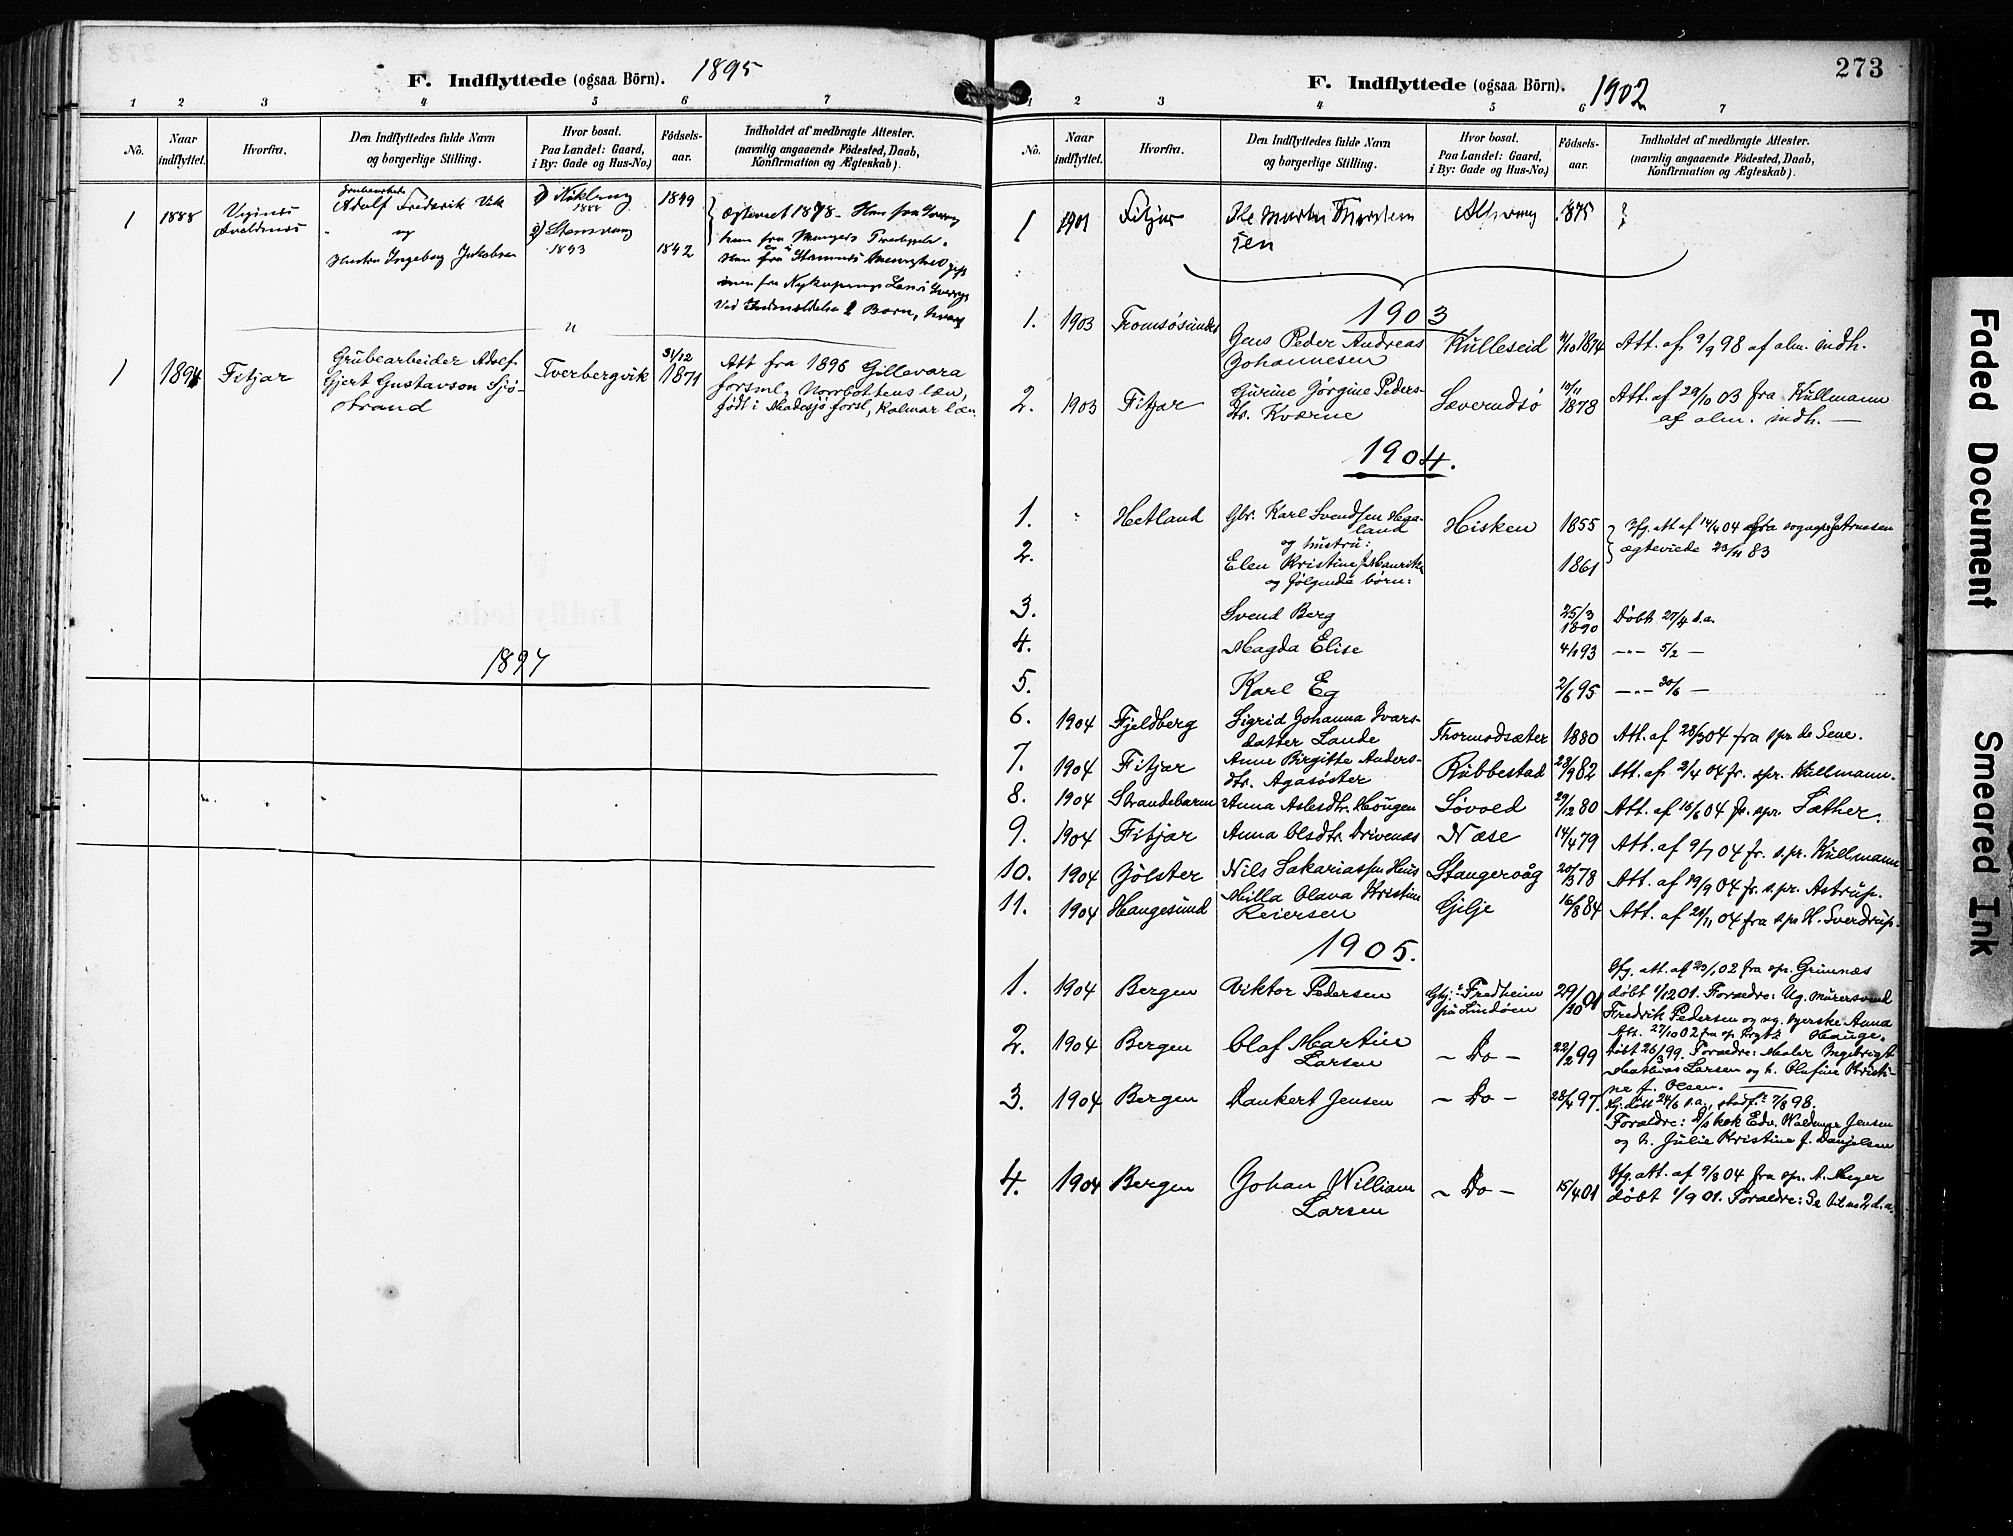 F. Indflyttede (ogsaa Börn). 1895
1 2 3 4 5 6 7
No. Naar indflyttet. Hvorfra. Den Indflyttedes fulde Navn og borgerlige Stilling. Hvor bosat. Paa Landet: Gaard, i By: Gade og Hus-No.) Födsels-aar. Indholdet af medbragte Attester. (navnlig angaaende Födested, Daab, Konfirmation og Ægteskab).
1 1888 Adolf Frederik Vik 1) 1888 1849 Ægteviet 1878 – Han fra
og 2) 1893 1842
Hustru Ingeborg Jakobsen
1 Fitjar Grubearbeider Adolf Tverbergvik 31/12 1871 Att fra 1896 Gillevara
Gjert Gustavson Sjö- forsml, Norrbottens læn,
strand födt i Madesjö forsl, Kalmar læn.
1897
F. Indflyttede (ogsaa Börn). 1902
273
1 2 3 4 5 6 7
No. Naar indflyttet. Hvorfra. Den Indflyttedes fulde Navn og borgerlige Stilling. Hvor bosat. Paa Landet: Gaard, i By: Gade og Hus-No.) Födsels-aar. Indholdet af medbragte Attester. (navnlig angaaende Födested, Daab, Konfirmation og Ægteskab).
1 1901 Fitjar 1875
1903
1. 1903 Tromsøsundet Jens Peder Andreas Kulleseid 11/10 1874 Att. af 9/9 98 af alm. indh.
Johannesen
2. 1903 Fitjar Gurine Jörgine Peders- Sæverudsö 10/11 1878 Att. af 29/10 03 fra Kullmann
dtr. Kværne af alm. indh. —
1904.
1. Hetland Gbr. Karl Svendsen Haga- Hisken 1855 Ifg. att af 14/4 04 fra sognepr Arnesen
land ægteviede 23/11 83
og hustru:
2. Elen Kristine f. Mauritzen 1861
og følgende børn:
3. Svend Berg 25/3 1890 Döbt 27/4 s.a.
4. Magda Elise 4/1 93 –"– 5/2 –
5. Karl Eg 2/6 95 –"– 30/6 –
6. 1904 Fjeldberg Sigrid Johanna Ivars- Thormodsæter 1880 Att. af 28/3 04 fra spr de Seve.
datter Lande
7. 1904 Fitjar Anne Birgitte Anders- Rubbestad 23/9 82 Att. af 2/4 04 fr. spr. Kullmann.
dtr. Agasöster
8. 1904 Strandebarm Anna Aslesdtr. Hougen Lövoed 29/12 80 Att. af 16/6 04 fr. spr. Sæther.
9. 1904 Fitjar Anna Olsdtr. Drivenæs Næse 14/4 79 Att. af 9/7 04 fr. spr. Kullmann
10. 1904 Jölster Nils Sakariassen Huus Stangervåg 20/3 78 Att. af 19/9 04 fr. spr. Astrup.
11. 1904 Haugesund Milla Olava Kristine Gilje 16/8 84 Att. af 29/11 04 fra spr H. Sverdrup.
Reiersen
1905.
1. 1904 Bergen Viktor Pedersen Gbj: Fredheim 29/10 01 Ifg. att. af 23/1 02 fra spr. Grimnæs
på Lindöen döbt 1/12 01. Forældre: Ug. murersvend
Fredrik Pedersen og ug. syerske Anna
Hauge.
2. 1904 Bergen Olaf Martin – Do – 22/2 99 Att. 27/10 02 fra sp.
Larsen döbt 26/3 99. Forældre: Maler Ingebrigt
Mathias Larsen og h. Olufine Kristi-
ne f. Olsen.
3. 1904 Bergen Dankert Jensen – Do – 28/4 97. Hj. döbt 24/6 s.a., stadf. 7/8 98.
Forældre: D/s kok Edv. Waldemar Jensen
og h. Julie Kristine f. Danielsen
4. 1904 Bergen Johan William – Do – 15/4 01 Ifg. att. af 9/8 04 fra spr. A. Meyer
Larsen döbt 1/9 01. Forældre: Se til no 2 d.a.
Faded Document
Smeared Ink